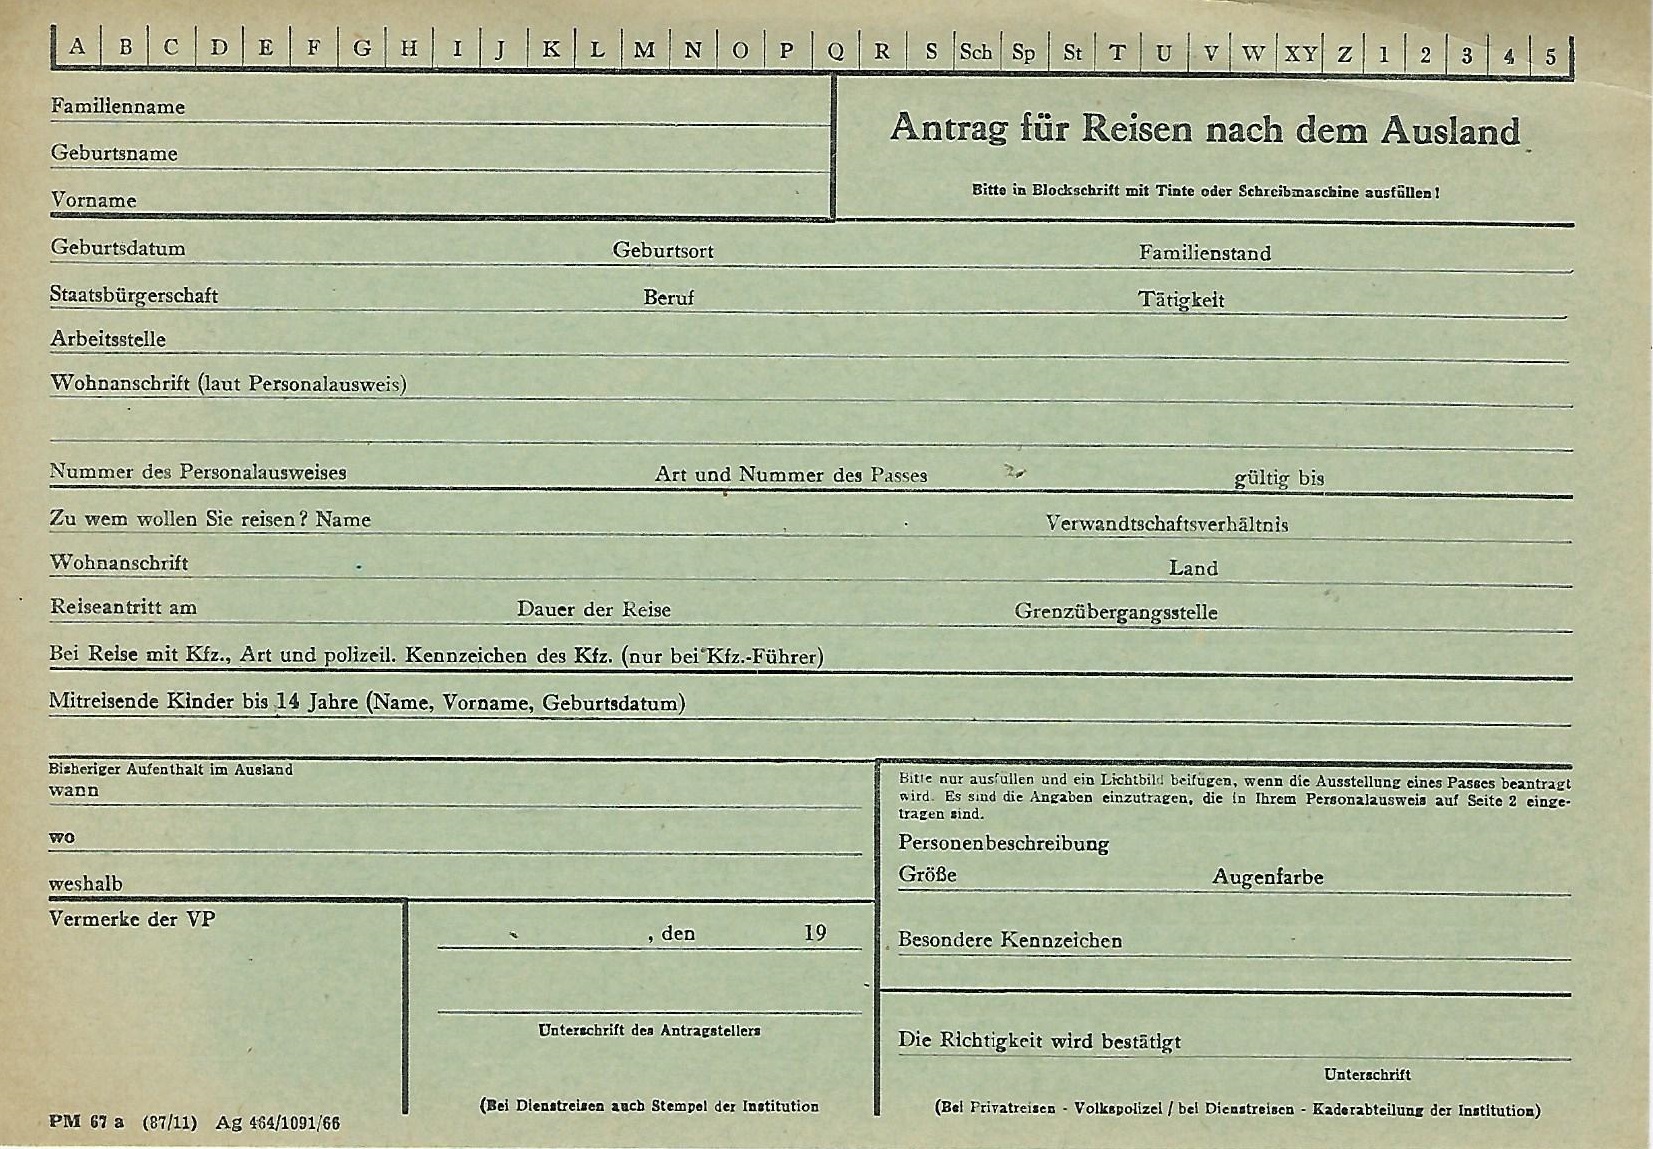 A B C D E F G H I J K L M N O P Q R S Sch Sp St T U V W XY Z 1 2 3 4 5
Familienname
Geburtsname
Vorname
Antrag für Reisen nach dem Ausland
Bitte in Blockschrift mit Tinte oder Schreibmaschine ausfüllen!
Geburtsdatum Geburtsort Familienstand
Staatsbürgerschaft Beruf Tätigkeit
Arbeitsstelle
Wohnanschrift (laut Personalausweis)
Nummer des Personalausweises Art und Nummer des Passes gültig bis
Zu wem wollen Sie reisen? Name Verwandtschaftsverhältnis
Wohnanschrift Land
Reiseantritt am Dauer der Reise Grenzübergangsstelle
Bei Reise mit Kfz., Art und polizeil. Kennzeichen des Kfz. (nur bei Kfz.-Führer)
Mitreisende Kinder bis 14 Jahre (Name, Vorname, Geburtsdatum)
Bisheriger Aufenthalt im Ausland
wann
wo
weshalb
Bitte nur ausfullen und ein Lichtbild beifugen, wenn die Ausstellung eines Passes beantragt
wird. Es sind die Angaben einzutragen, die in Ihrem Personalausweis auf Seite 2 einge-
tragen sind.
Personenbeschreibung
Größe Augenfarbe
Besondere Kennzeichen
Vermerke der VP
, den 19
Unterschrift des Antragstellers
(Bei Dienstreisen auch Stempel der Institution
Die Richtigkeit wird bestätigt
Unterschrift
(Bei Privatreisen - Volkspolizei / bei Dienstreisen - Kaderabteilung der Institution)
PM 67 a (87/11) Ag 464/1091/66